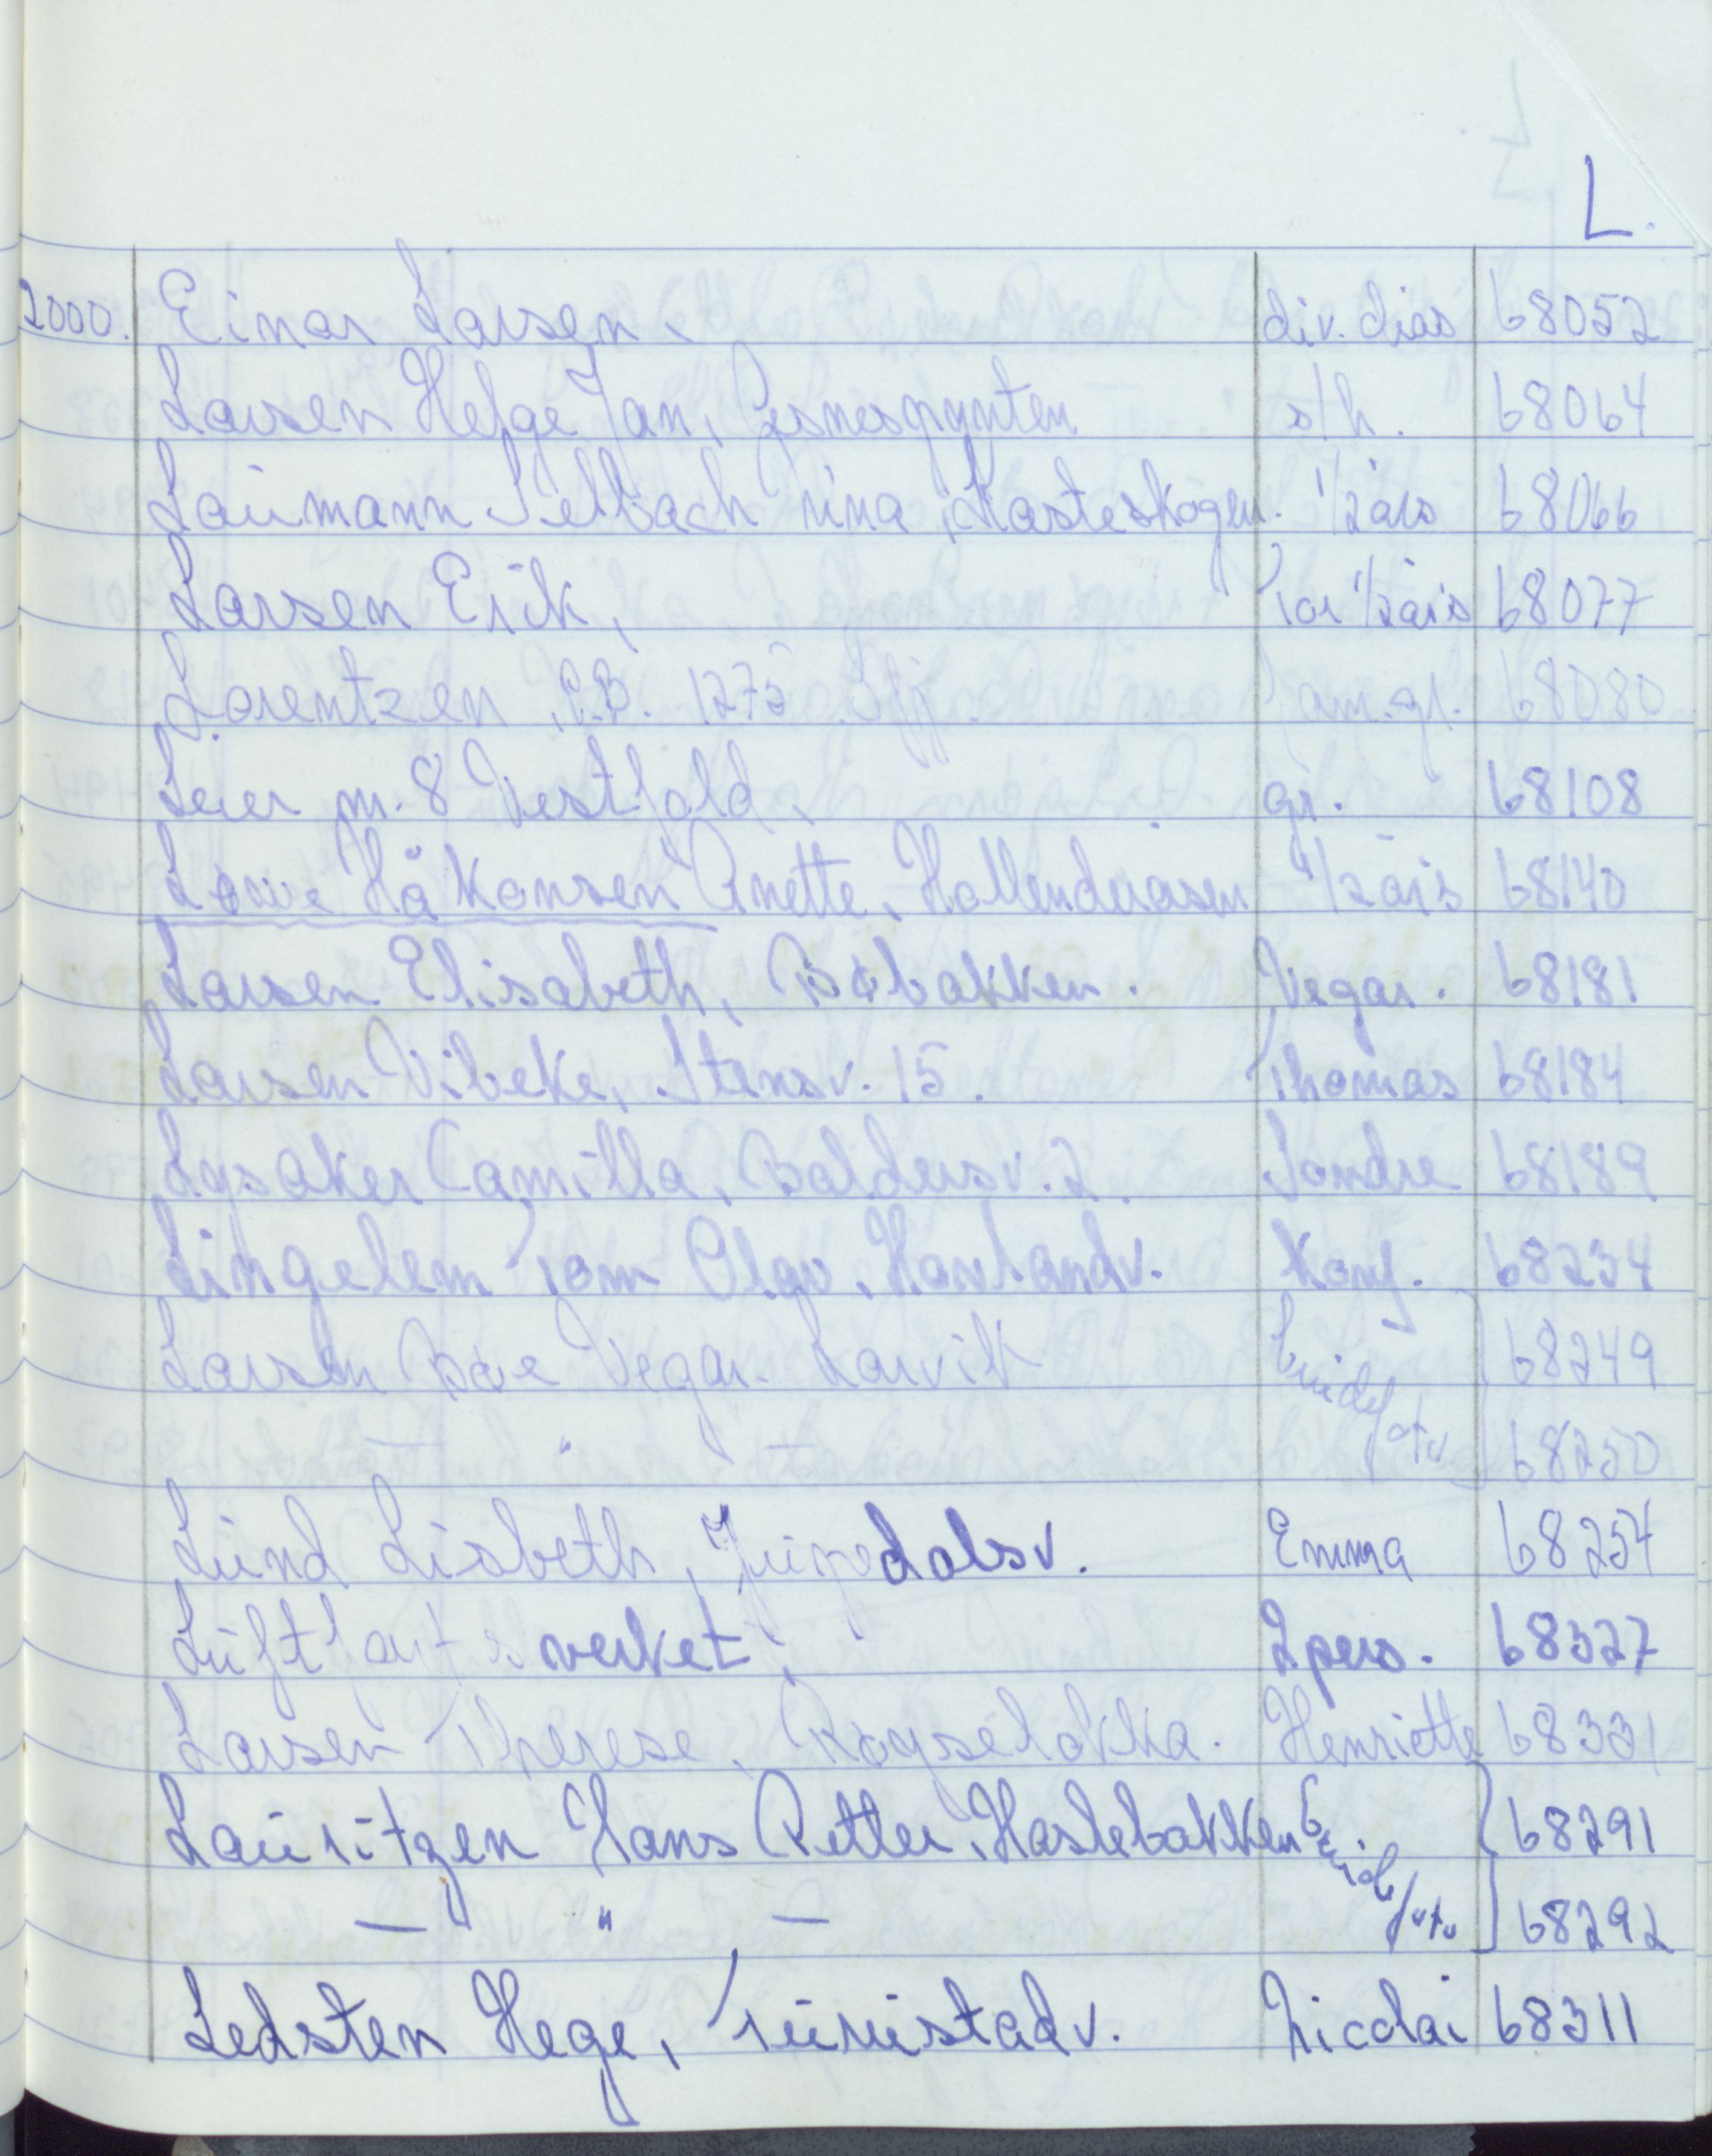 L.
2000. Einar Larsen. div. dias 68052
Larsen Helge Jan, Gismespynten s/h. 68064
Laumann Selbach Nina, Kasteskogen. 1/2 års 68066
Larsen Erik, Tor 1/2 års 68077
Lorentzen, P.B. 1275 Sfj. Fam.gr. 68080
Leier m. 8 Vestfold, gr. 68108
Lowe Håkonsen Anette, Hollenderåsen 1/2 års 68140
Larsen Elisabeth, Bøbakken. Vegar. 68181
Larsen Vibeke, Stensv. 15. Thomas 68184
Lysaker Camilla, Baldersv. 2. Sondre 68189
Lingelem Tom Olav, Havlandv. Konf. 68234
Larsen Bøe Vegar. Larvik brudef 68249
— " — atv 68250
Lund Lisbeth, dalsv. Emma 68254
Luftfartsverket, 2 pers. 68327
Larsen Therese, Røyseløkka. Henriette 68331
Lauritzen Hans Petter, Haslebakken brudef 68291
— " — atv 68292
Ledsten Hege, Furustadv. Nicolai 68311